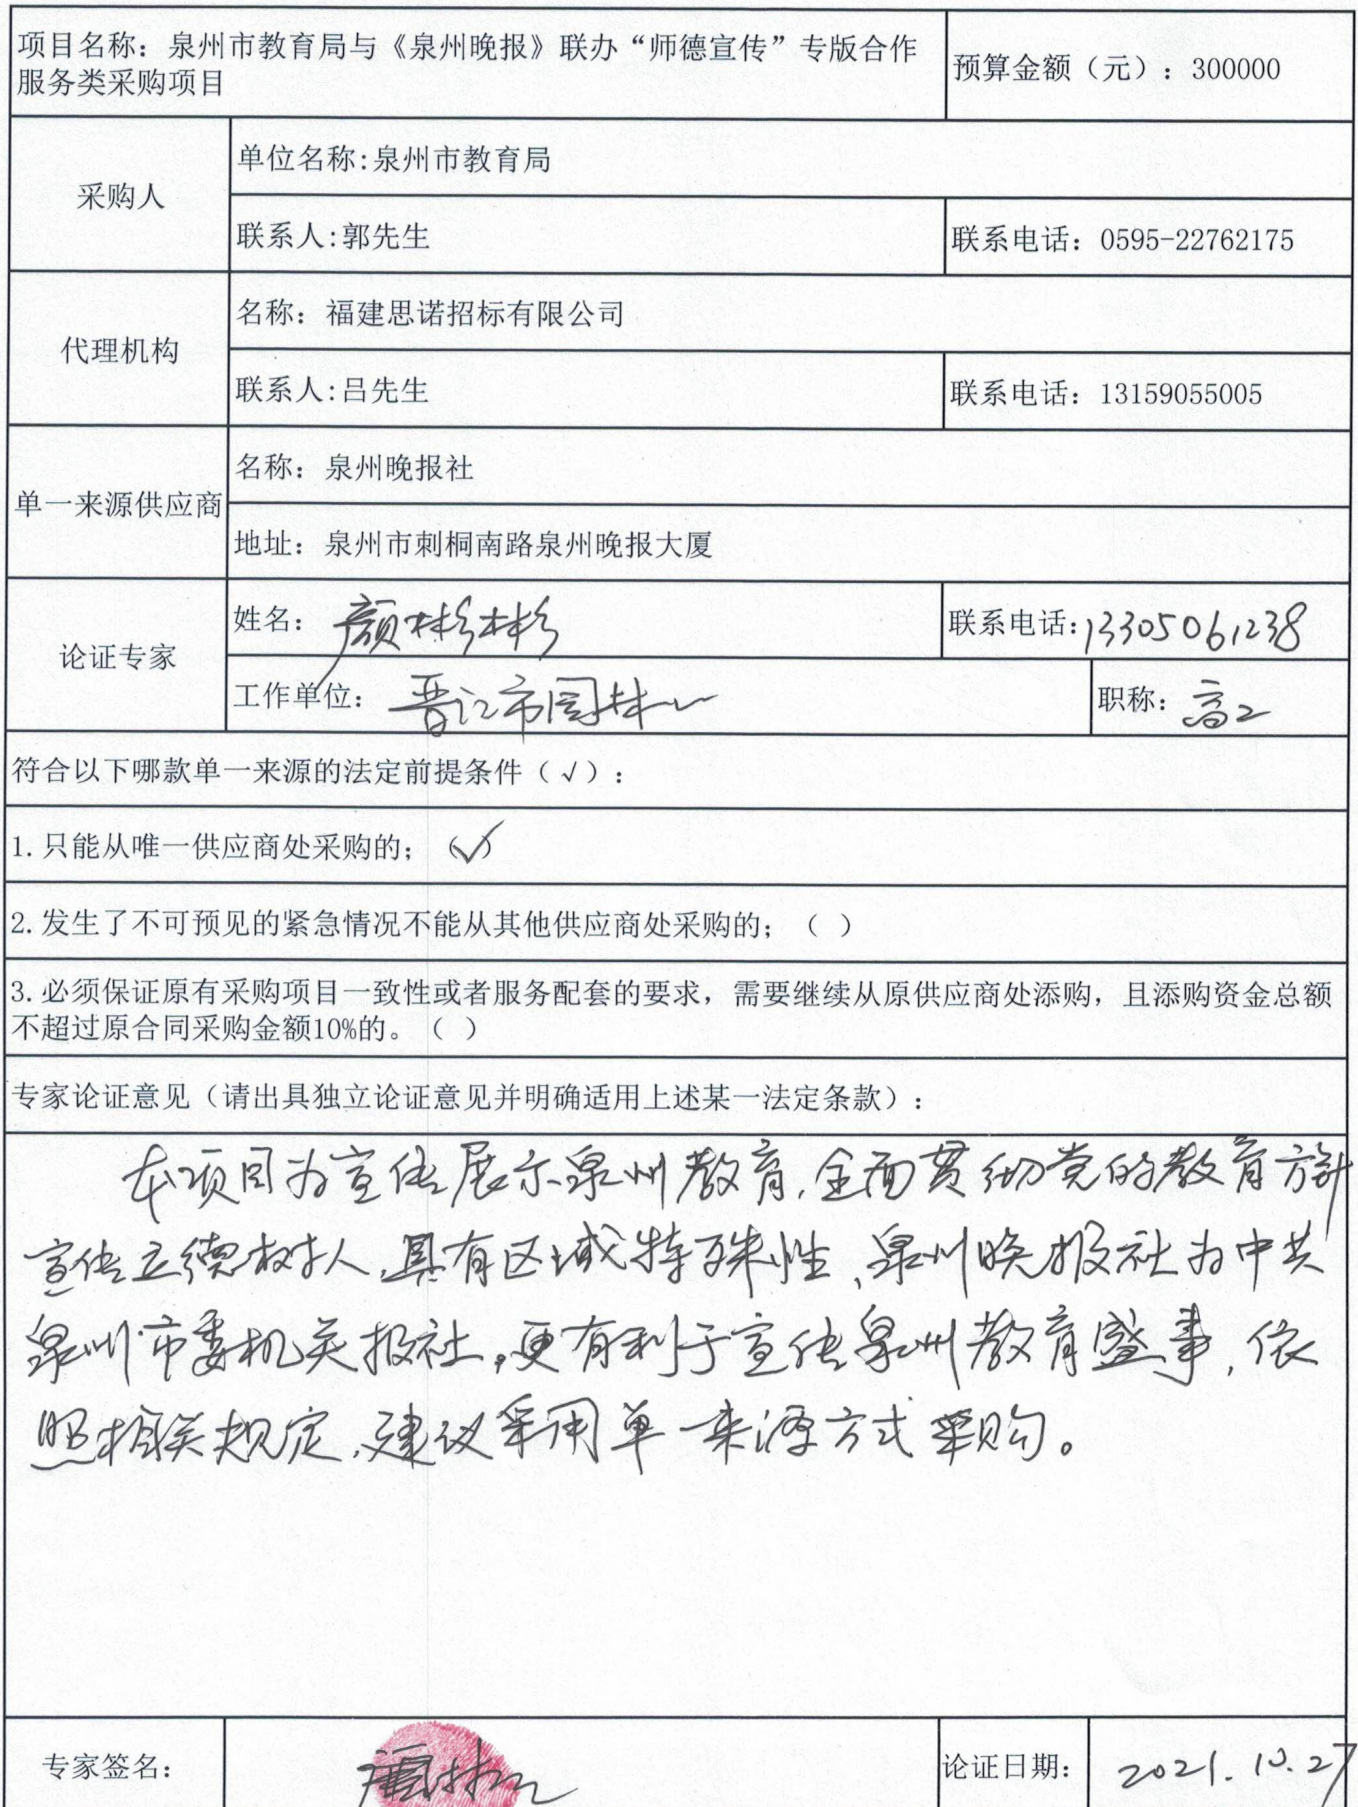 项目名称：泉州市教育局与《泉州晚报》联办“师德宣传”专版合作
服务类采购项目
预算金额（元）：300000
采购人
单位名称:泉州市教育局
联系人:郭先生
联系电话：0595-22762175
代理机构
名称：福建思诺招标有限公司
联系人:吕先生
联系电话：13159055005
单一来源供应商
名称：泉州晚报社
地址：泉州市刺桐南路泉州晚报大厦
论证专家
姓名：颜彬彬
联系电话:13305061238
工作单位：晋江市园林中心
职称：高工
符合以下哪款单一来源的法定前提条件（√）：
1.只能从唯一供应商处采购的；（√）
2.发生了不可预见的紧急情况不能从其他供应商处采购的；（ ）
3.必须保证原有采购项目一致性或者服务配套的要求，需要继续从原供应商处添购，且添购资金总额
不超过原合同采购金额10%的。（ ）
专家论证意见（请出具独立论证意见并明确适用上述某一法定条款）：
本项目为宣传展示泉州教育，全面贯彻党的教育方针
宣传立德树人，具有区域特殊性，泉州晚报社为中共
泉州市委机关报社，更有利于宣传泉州教育盛事，依
照相关规定，建议采用单一来源方式采购。
专家签名：
颜彬彬
论证日期：
2021.10.27